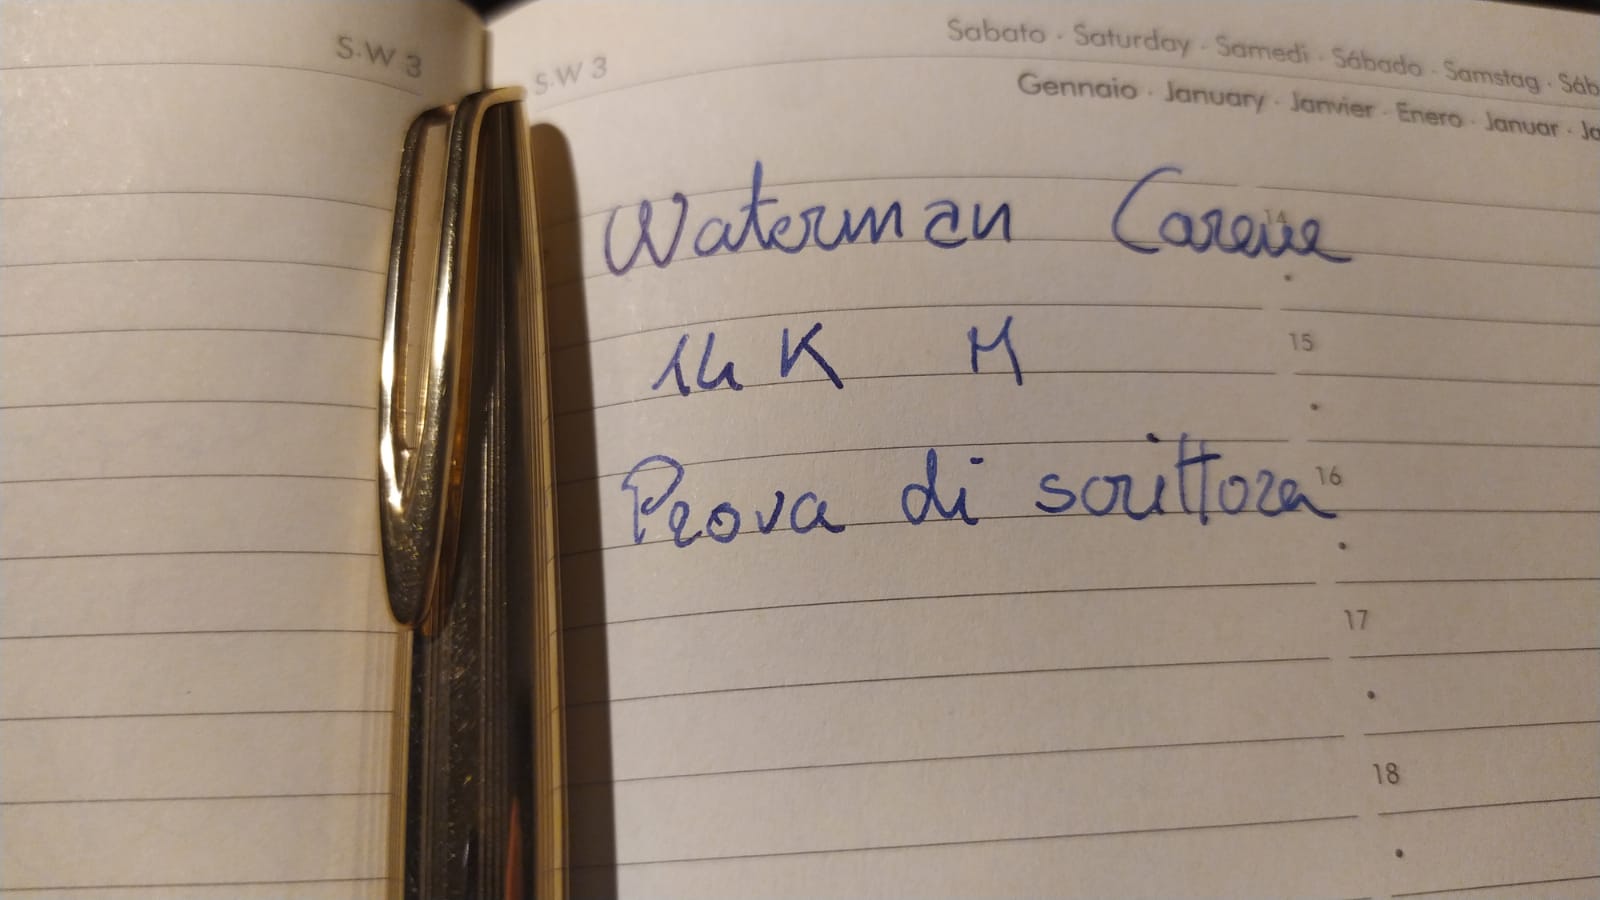 S.W 3
S.W 3
Sabato · Saturday · Samedi · Sábado · Samstag · Sáb
Gennaio · January · Janvier · Enero · Januar · Ja
Waterman Carene
14
14 K M
15
Prova di scrittora
16
17
18